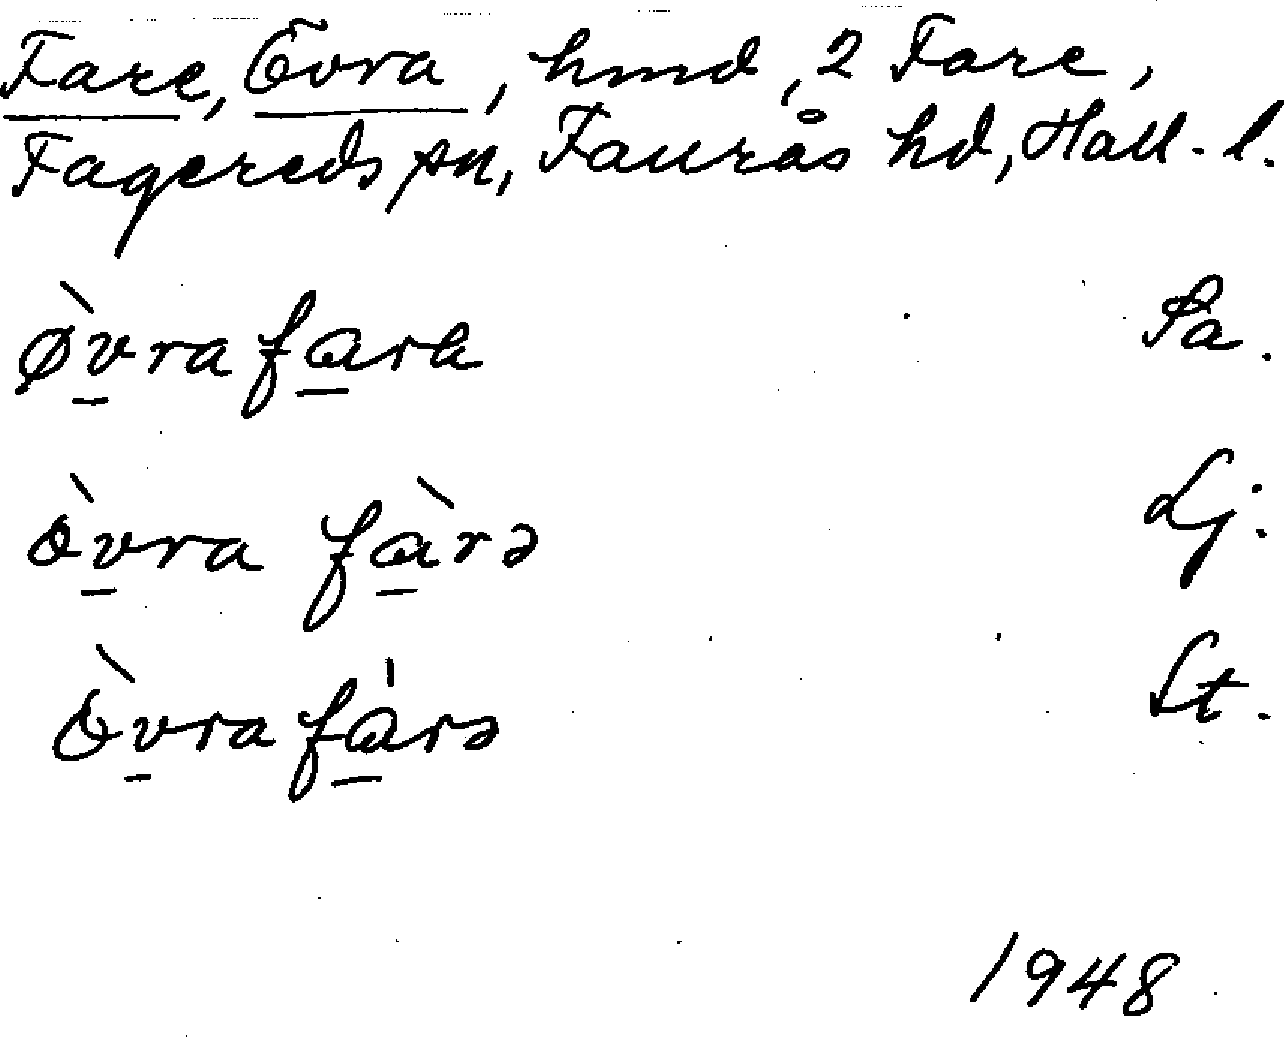 Fare, Övra, hmd, 2 Fare,
Fagereds sn, Faurås hd, Hall. l.
Øv̲̀ra fa̲ra Sa.
Òv̲ra fà̲rə Lj.
Òv̲ra fa̲̍rə St.
1948